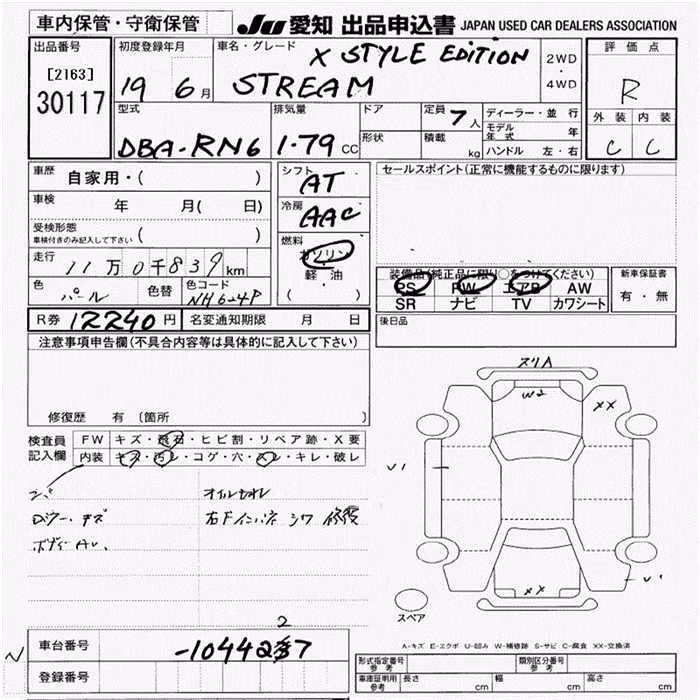 車内保管・守衛保管
JU 愛知 出品申込書 JAPAN USED CAR DEALERS ASSOCIATION
出品番号
[2163]
30117
初度登録年月
19 6月
車名・グレード
X STYLE EDITION
STREAM
2WD
・
4WD
評価点
R
外装 内装
C C
型式
DBA-RN6
排気量
1.79 CC
ドア
形状
定員 7人
積載 kg
ディーラー・並行
モデル年式 年
ハンドル 左・右
車歴 自家用・( )
車検 年 月( 日)
受検形態
車検付きのみ記入して下さい ( )
走行 11万0千839km
色 パール 色替 色コード NH624P
シフト AT
冷房 AAC
燃料
ガソリン
軽・油
( ・ )
セールスポイント(正常に機能するものに限ります)
装備品(純正品に限り○をつけてください)
PS PW エアB AW
SR ナビ TV カワシート
新車保証書
有・無
後日品
R券 12240円 名変通知期限 月 日
注意事項申告欄(不具合内容等は具体的に記入して下さい)
修復歴 有〔箇所 〕
検査員記入欄
FW キズ・飛石・ヒビ割・リペア跡・X要
内装 キズ・汚レ・コゲ・穴・スレ・キレ・破レ
オイルモレ
右Fインパネ シワ 修復
ボディ AU.
スリA
W2
XX
U1
XX
U1
スペア
A-キズ E-エクボ U-凹み W-補修跡 S-サビ C-腐食 XX-交換済
N
車台番号 -1044237
2
登録番号
形式指定番号 参考
類別区分番号 参考
車庫証明用 参考 長さ cm 幅 cm 高さ cm